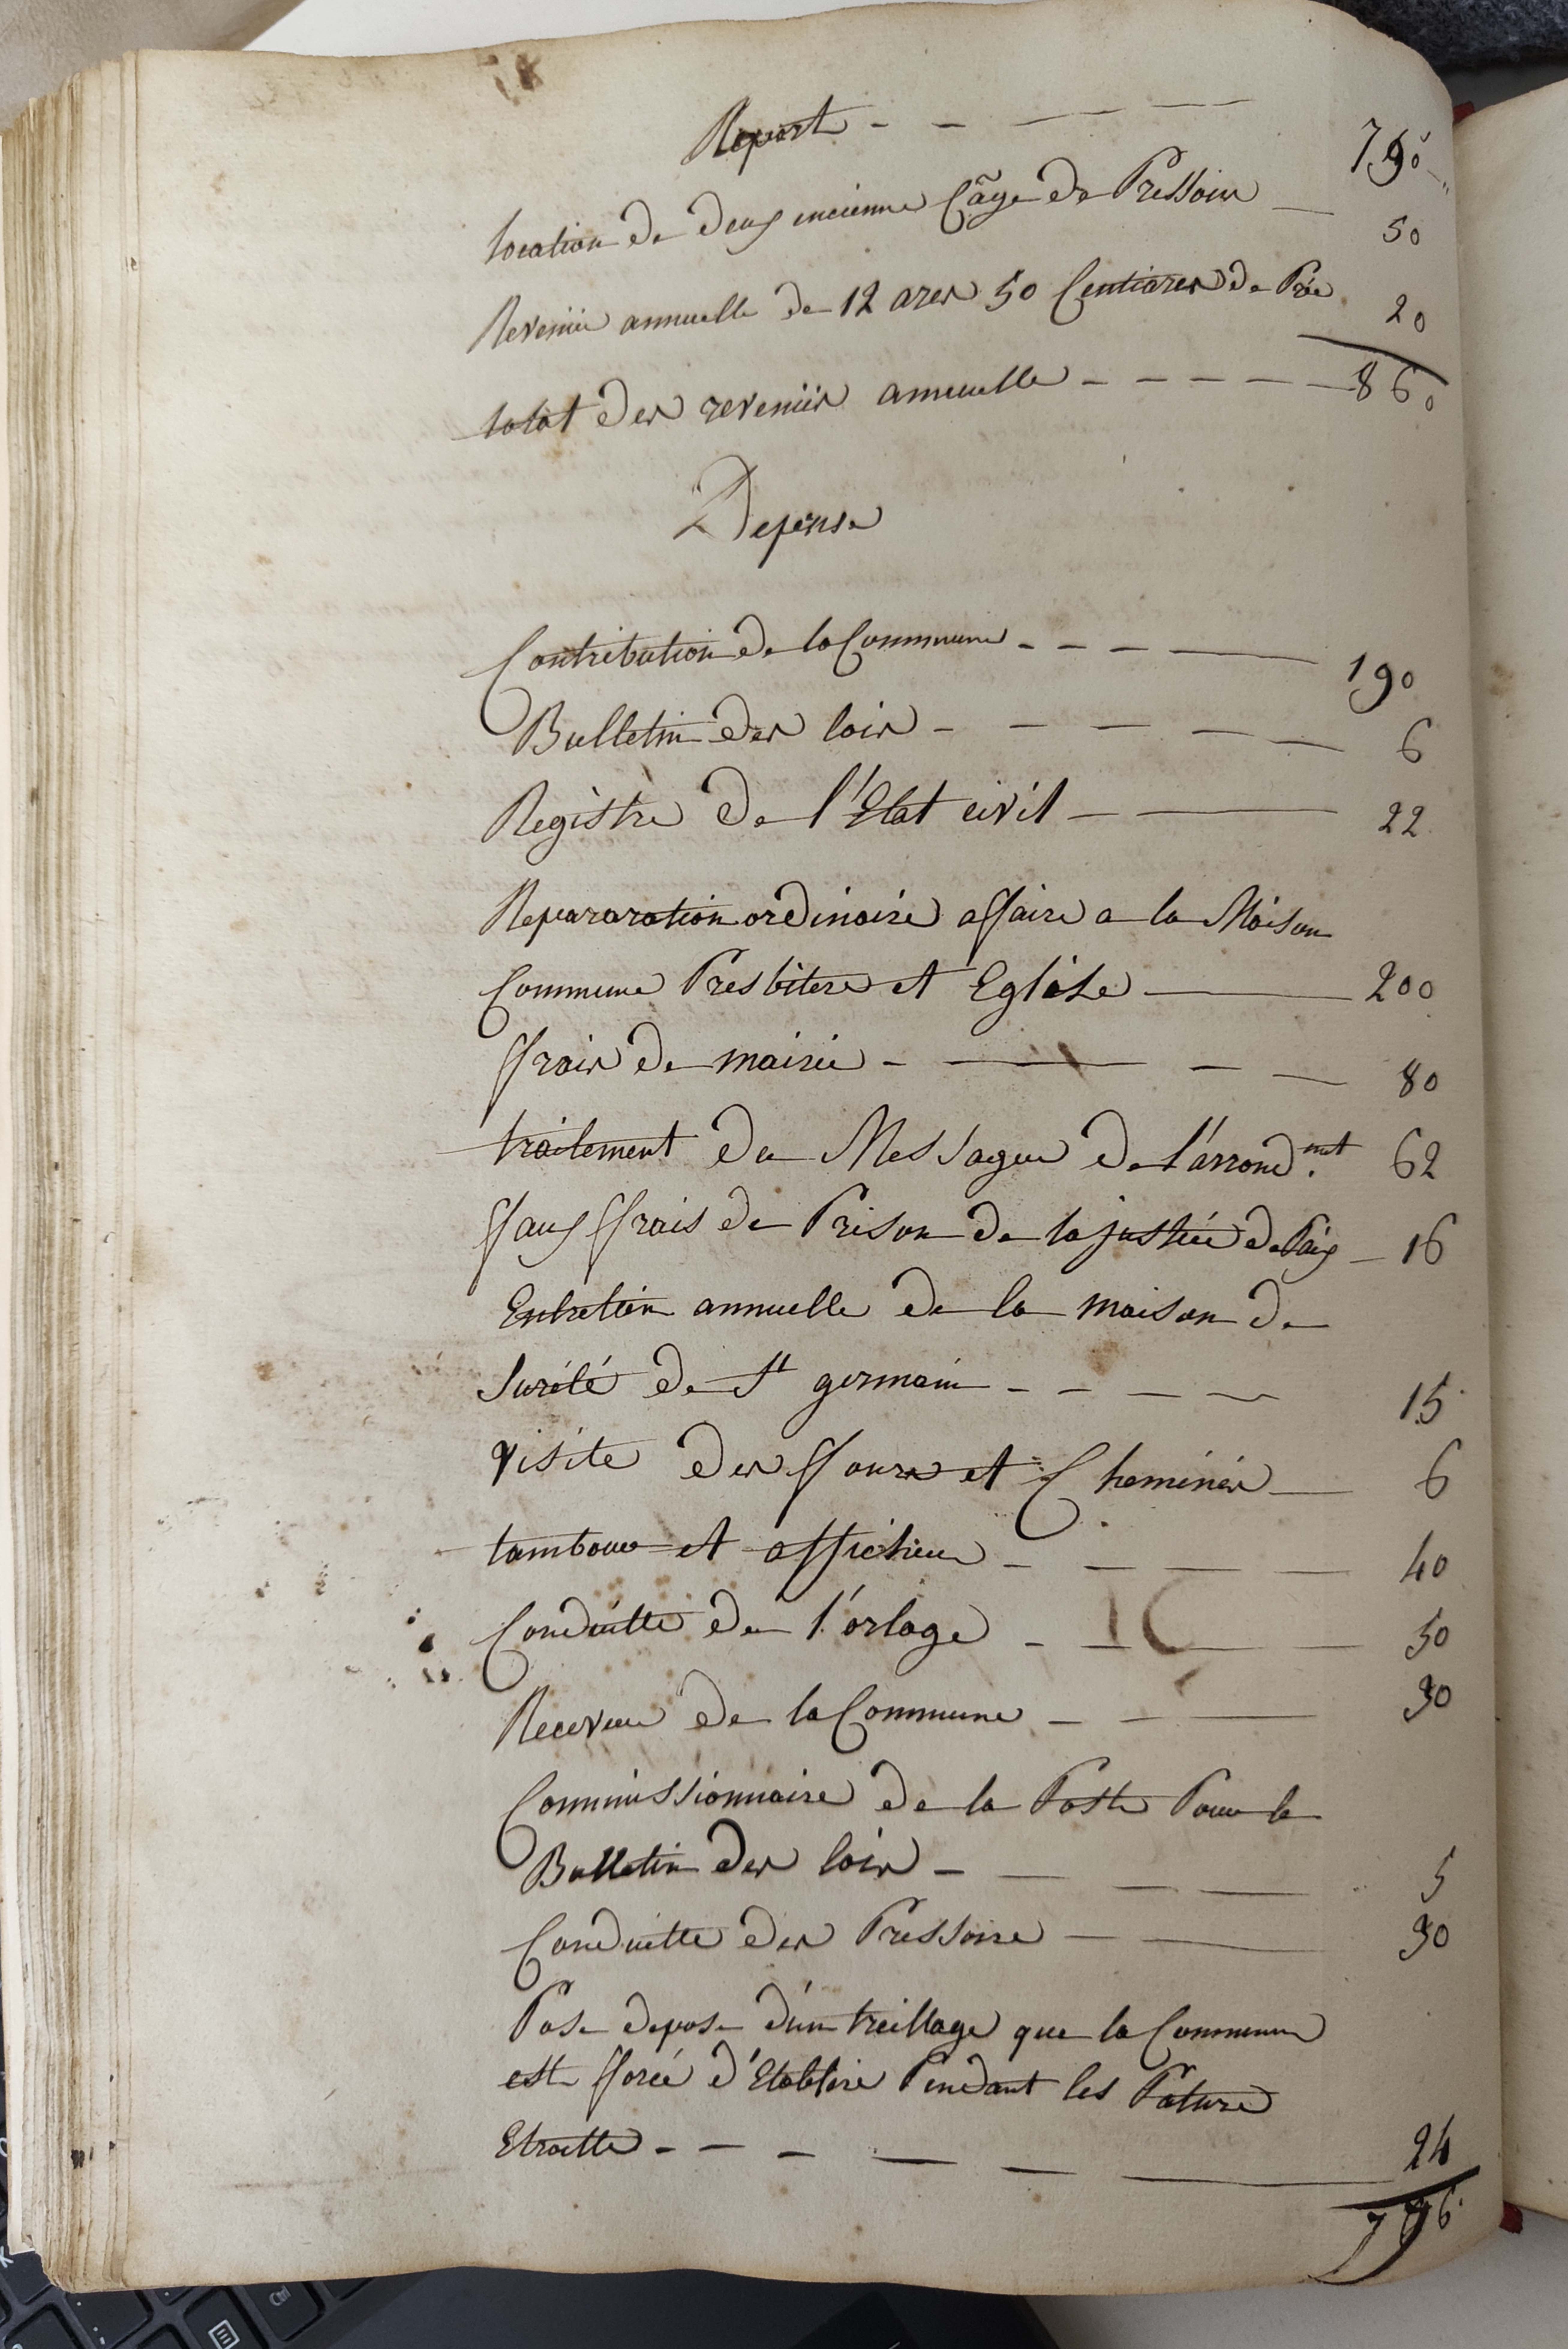 Report - - — — — 790
location de deux encienne Câge de Pressoir — 50
Revenue annuelle de 12 ares 50 Centiares de Prée 20
total des revenüs annuelle - - - - - 860
Depense
Contribution de la Commune - - - — 190
Bulletin des lois - — — — — 6
Registre de l'Etat civil — — 22
Repararation ordinaire affaire a la Maison
Commune Presbitere et Eglise — 200
ffrais de mairie - — — — 80
traitement du Messager de l'arrond.mt 62
ffaux ffrais de Prison de la justice de Paix — 16
Entretien annuelle de la maison de
Surété de St germain - - — ~ 15
visite des ffours et Cheminés — 6
tambour et afficheur - — — — 40
Conduitte de l'orloge - — — 50
Receveur de la Commune — — — 30
Commissionnaire de la Poste Pour le
Bulletin des lois — — — — 5
Conduitte des Pressoire — — 30
Pose depose d'un treillage que la Commune
est fforcé d'Etablire Pendant les Pature
Etraitte - — — — — — 24
776